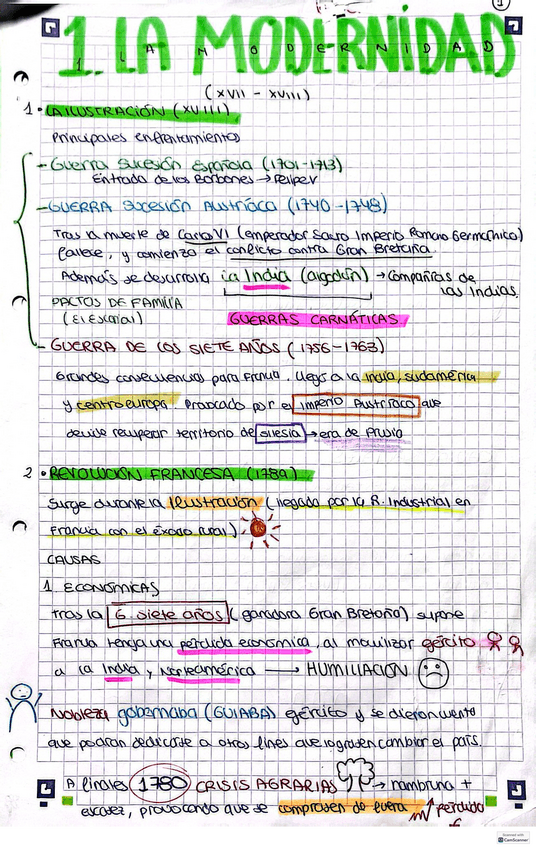 1
1. LA MODERNIDAD
LA MODERNIDAD
(XVII - XVIII)
1 • LA ILUSTRACIÓN (XVIII)
Principales enfrentamientos
- Guerra Sucesión Española (1701-1713)
Entrada de los Borbones → Felipe V
- GUERRA SUCESIÓN AUSTRÍACA (1740-1748)
Tras la muerte de Carlos VI (emperador Sacro Imperio Romano Germánico)
fallece, y comienza el conflicto contra Gran Bretaña.
Además se desarrolla la India (algodón) → Compañías de
las Indias.
PACTOS DE FAMILIA
(El Escorial)
GUERRAS CARNÁTICAS
- GUERRA DE LOS SIETE AÑOS (1756-1763)
Grandes consecuencias para Francia. Llegó a la India, sudamérica
y centroeuropa. Provocado por el Imperio Austríaco que
decide recuperar territorio de Silesia → era de Prusia
2 • REVOLUCIÓN FRANCESA (1789)
Surge durante la Ilustración (llegada por la R. Industrial en
Francia con el éxodo rural)
CAUSAS
1. ECONÓMICAS
Tras la G. siete años (ganadora Gran Bretaña) supone
Francia tenga una pérdida económica, al movilizar ejército
a la India y Norteamérica → HUMILLACIÓN
Nobleza gobernaba (GUIABA) ejército y se dieron cuenta
que podían dedicarse a otros fines que lograsen cambiar el país.
A finales 1780 CRISIS AGRARIAS → hambruna +
escasez, provocando que se comprasen de fuera pérdida
Scanned with
CamScanner